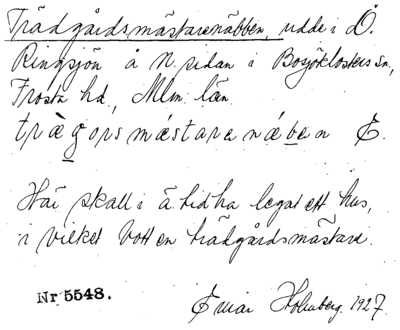 Trädgårdsmästarenäbben, udde i Ö.
Ringsjön å N. sidan i Bosjöklosters sn,
Frosta hd., Mlm. län.
trægorsmæstarenæben E.
Här skall i ä. tid ha legat ett hus,
i vilket bott en trädgårdsmästare.
Nr 5548.
Einar Holmberg. 1927.